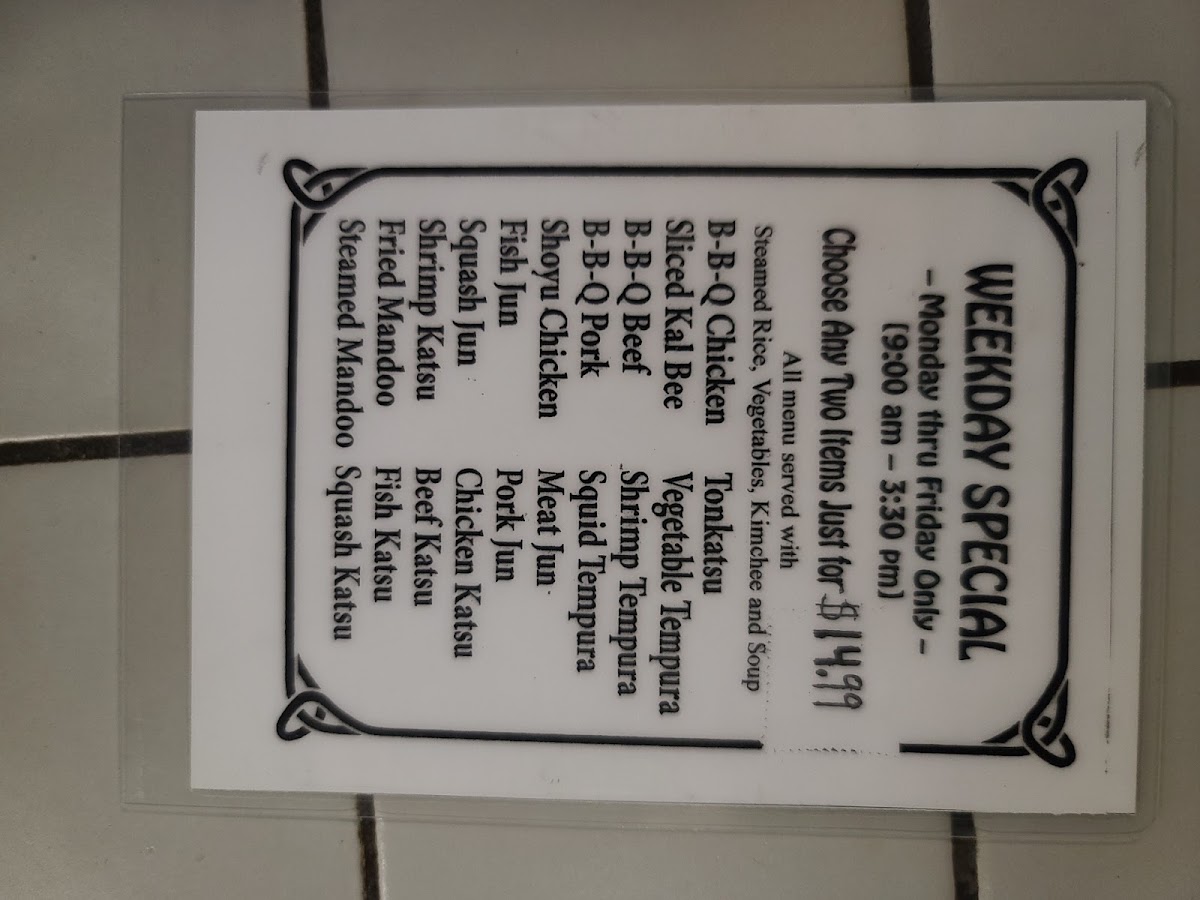 WEEKDAY SPECIAL
- Monday thru Friday Only -
(9:00 am - 3:30 pm)
Choose Any Two Items Just for $14.99
All menu served with
Steamed Rice, Vegetables, Kimchee and Soup
B-B-Q Chicken Tonkatsu
Sliced Kal Bee Vegetable Tempura
B-B-Q Beef Shrimp Tempura
B-B-Q Pork Squid Tempura
Shoyu Chicken Meat Jun
Fish Jun Pork Jun
Squash Jun Chicken Katsu
Shrimp Katsu Beef Katsu
Fried Mandoo Fish Katsu
Steamed Mandoo Squash Katsu